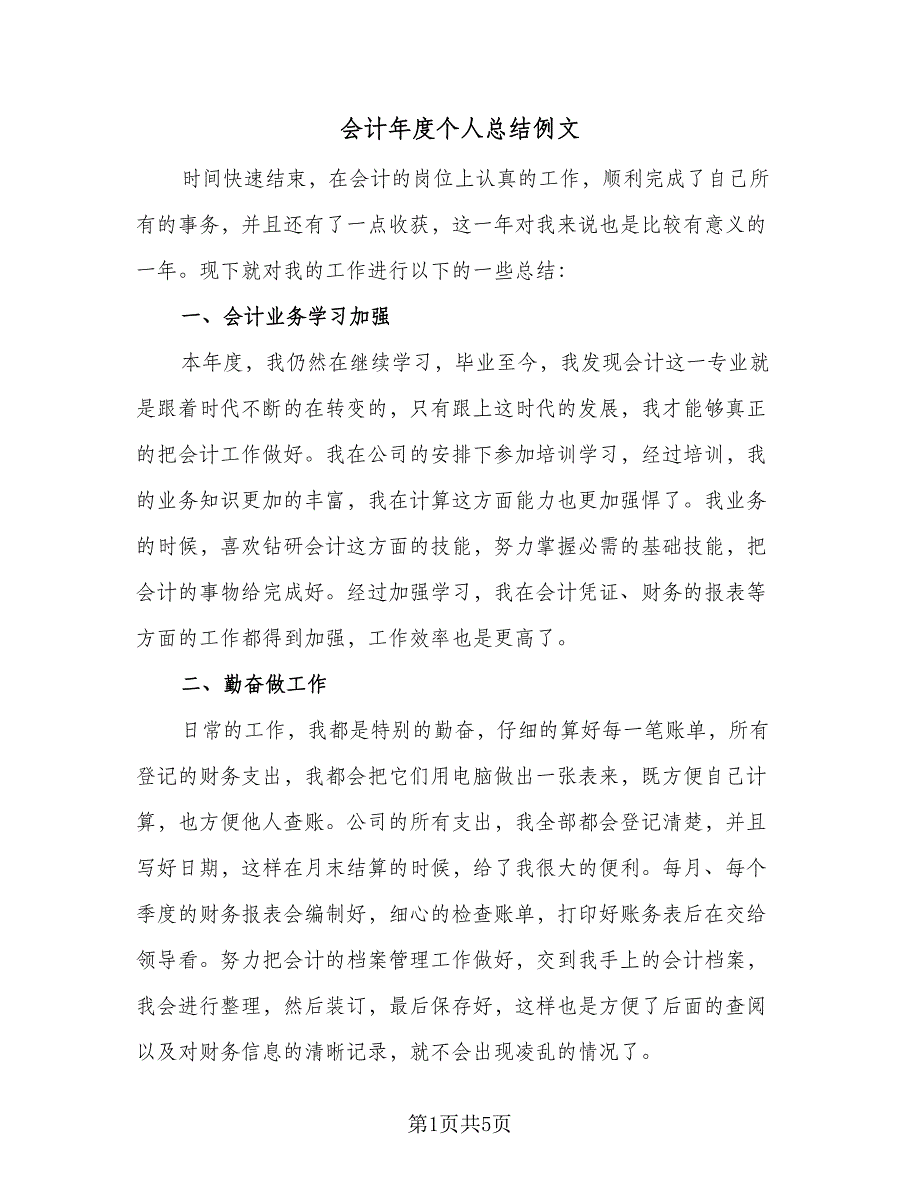 会计年度个人总结例文
时间快速结束，在会计的岗位上认真的工作，顺利完成了自己所
有的事务，并且还有了一点收获，这一年对我来说也是比较有意义的
一年。现下就对我的工作进行以下的一些总结：
一、会计业务学习加强
本年度，我仍然在继续学习，毕业至今，我发现会计这一专业就
是跟着时代不断的在转变的，只有跟上这时代的发展，我才能够真正
的把会计工作做好。我在公司的安排下参加培训学习，经过培训，我
的业务知识更加的丰富，我在计算这方面能力也更加强悍了。我业务
的时候，喜欢钻研会计这方面的技能，努力掌握必需的基础技能，把
会计的事物给完成好。经过加强学习，我在会计凭证、财务的报表等
方面的工作都得到加强，工作效率也是更高了。
二、勤奋做工作
日常的工作，我都是特别的勤奋，仔细的算好每一笔账单，所有
登记的财务支出，我都会把它们用电脑做出一张表来，既方便自己计
算，也方便他人查账。公司的所有支出，我全部都会登记清楚，并且
写好日期，这样在月末结算的时候，给了我很大的便利。每月、每个
季度的财务报表会编制好，细心的检查账单，打印好账务表后在交给
领导看。努力把会计的档案管理工作做好，交到我手上的会计档案，
我会进行整理，然后装订，最后保存好，这样也是方便了后面的查阅
以及对财务信息的清晰记录，就不会出现凌乱的情况了。
第1页共5页